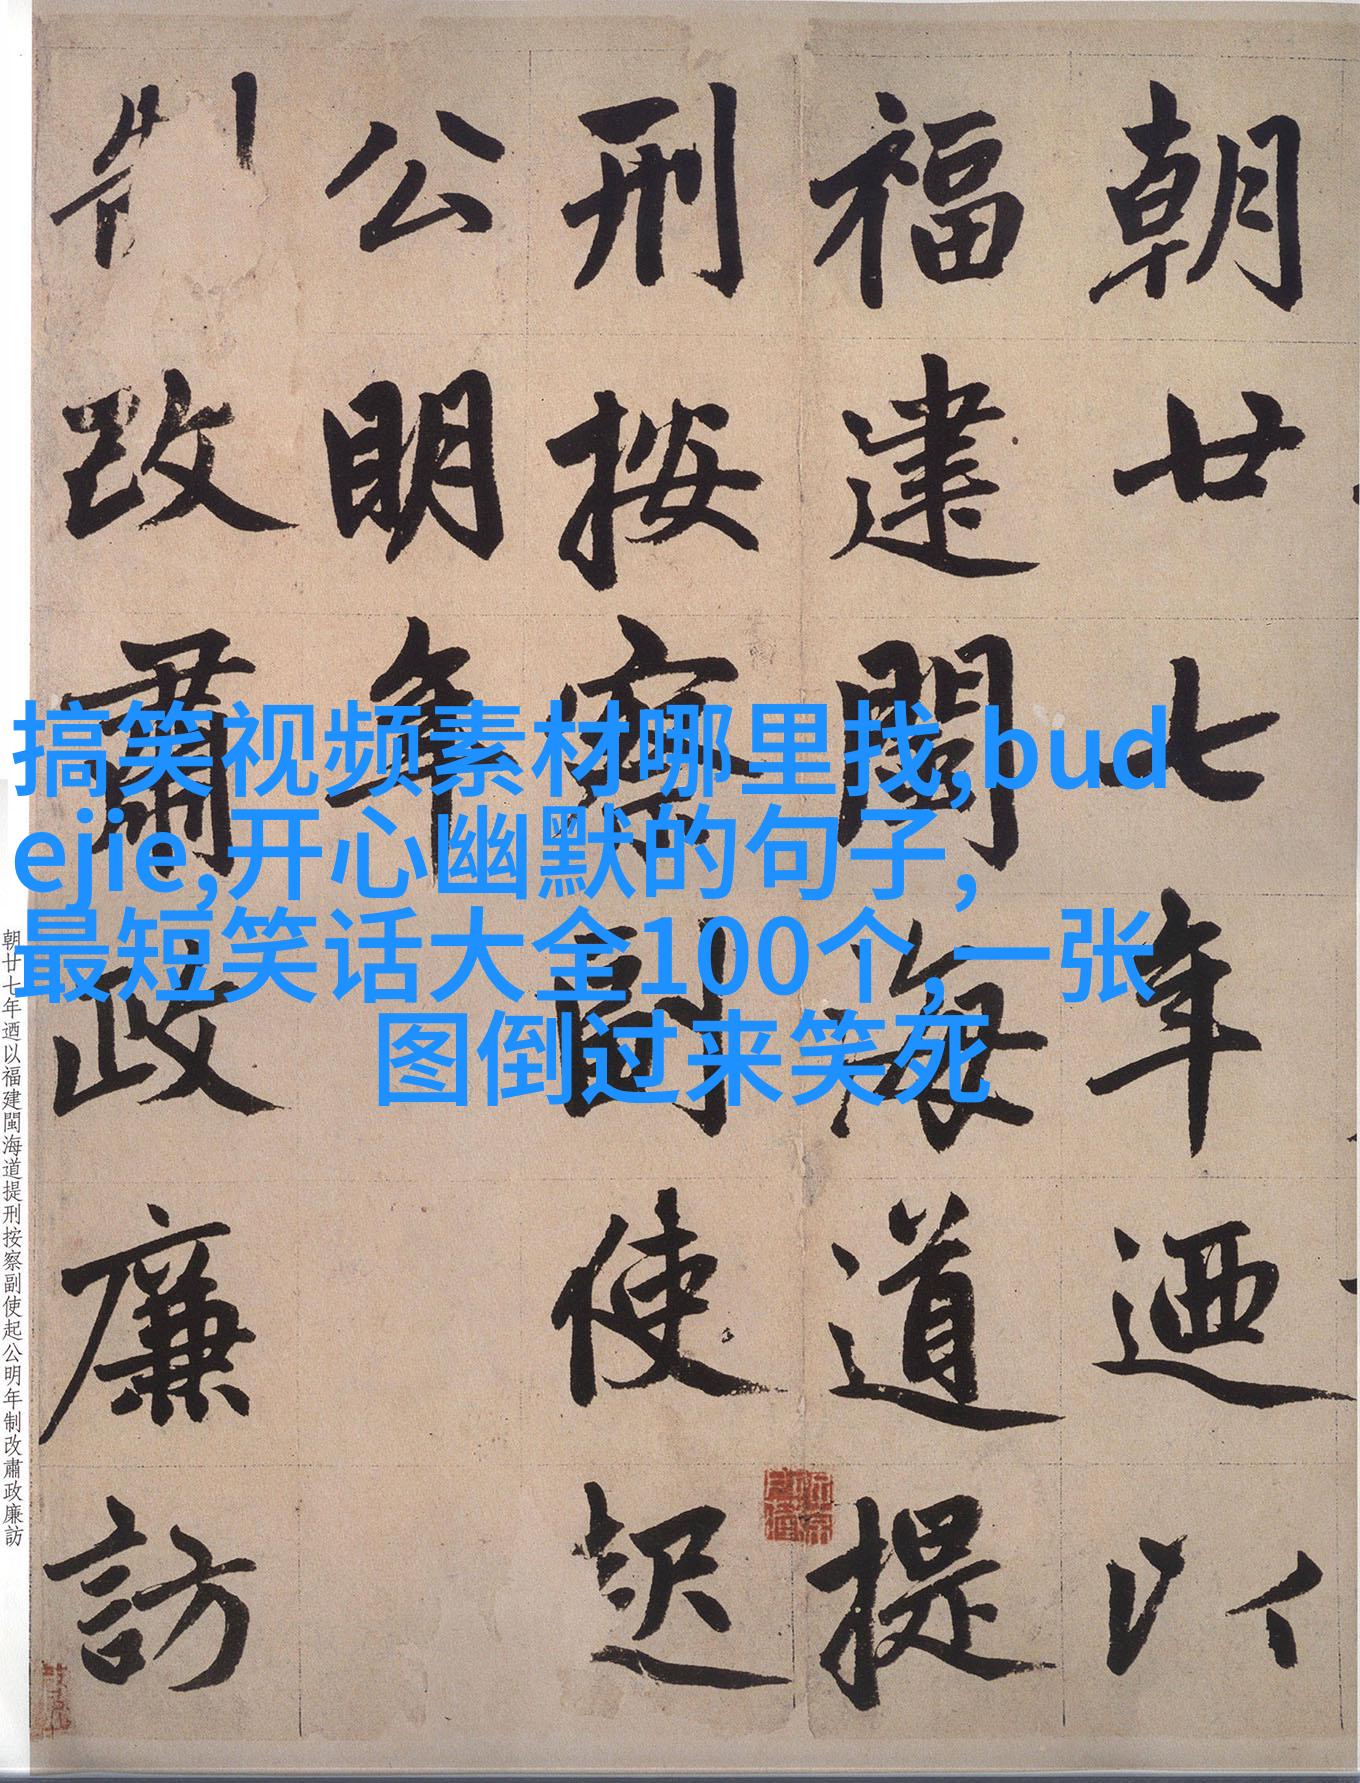 朝廿七年迺以
福建閩海道提
刑按察副使起
公明年
制改肅政廉訪
搞笑视频素材哪里找,bud
ejie,开心幽默的句子,
最短笑话大全100个,一张
图倒过来笑死
朝廿七年迺以福建閩海道提刑按察副使起公明年制改肅政廉訪